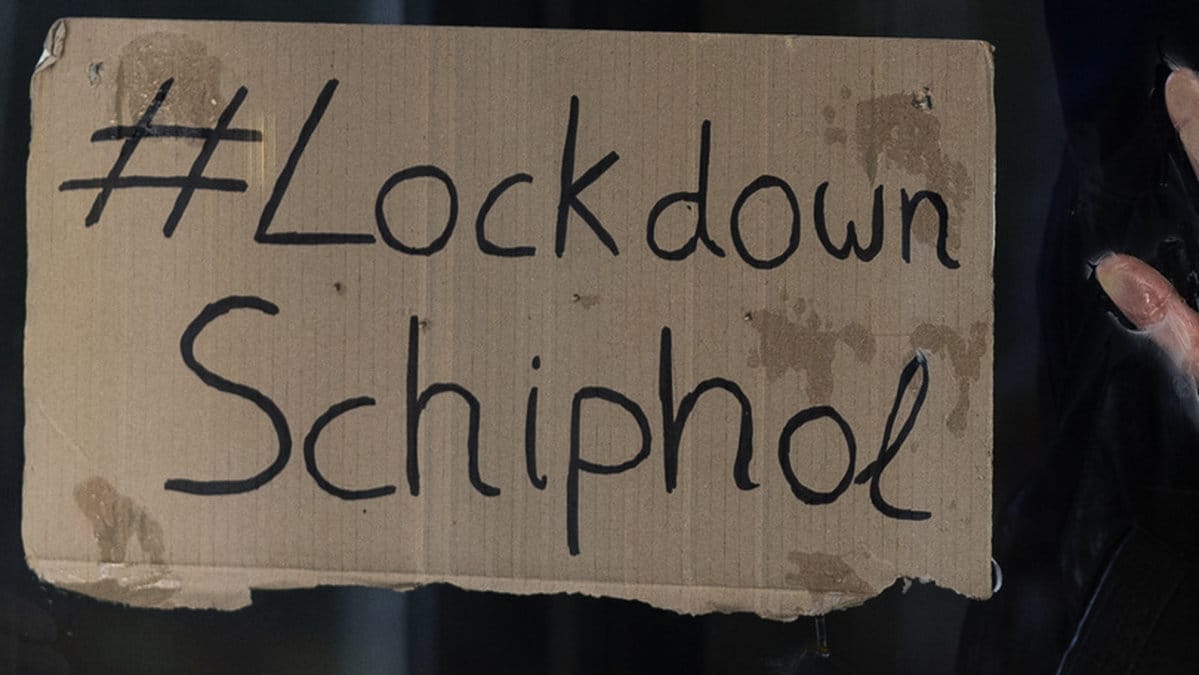 #Lockdown
Schiphol